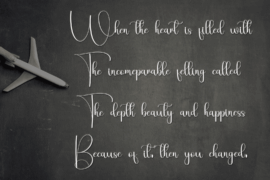 When the heart is filled with
The incomeparable felling called
The depth beauty and happiness
Because of it, then you changed,